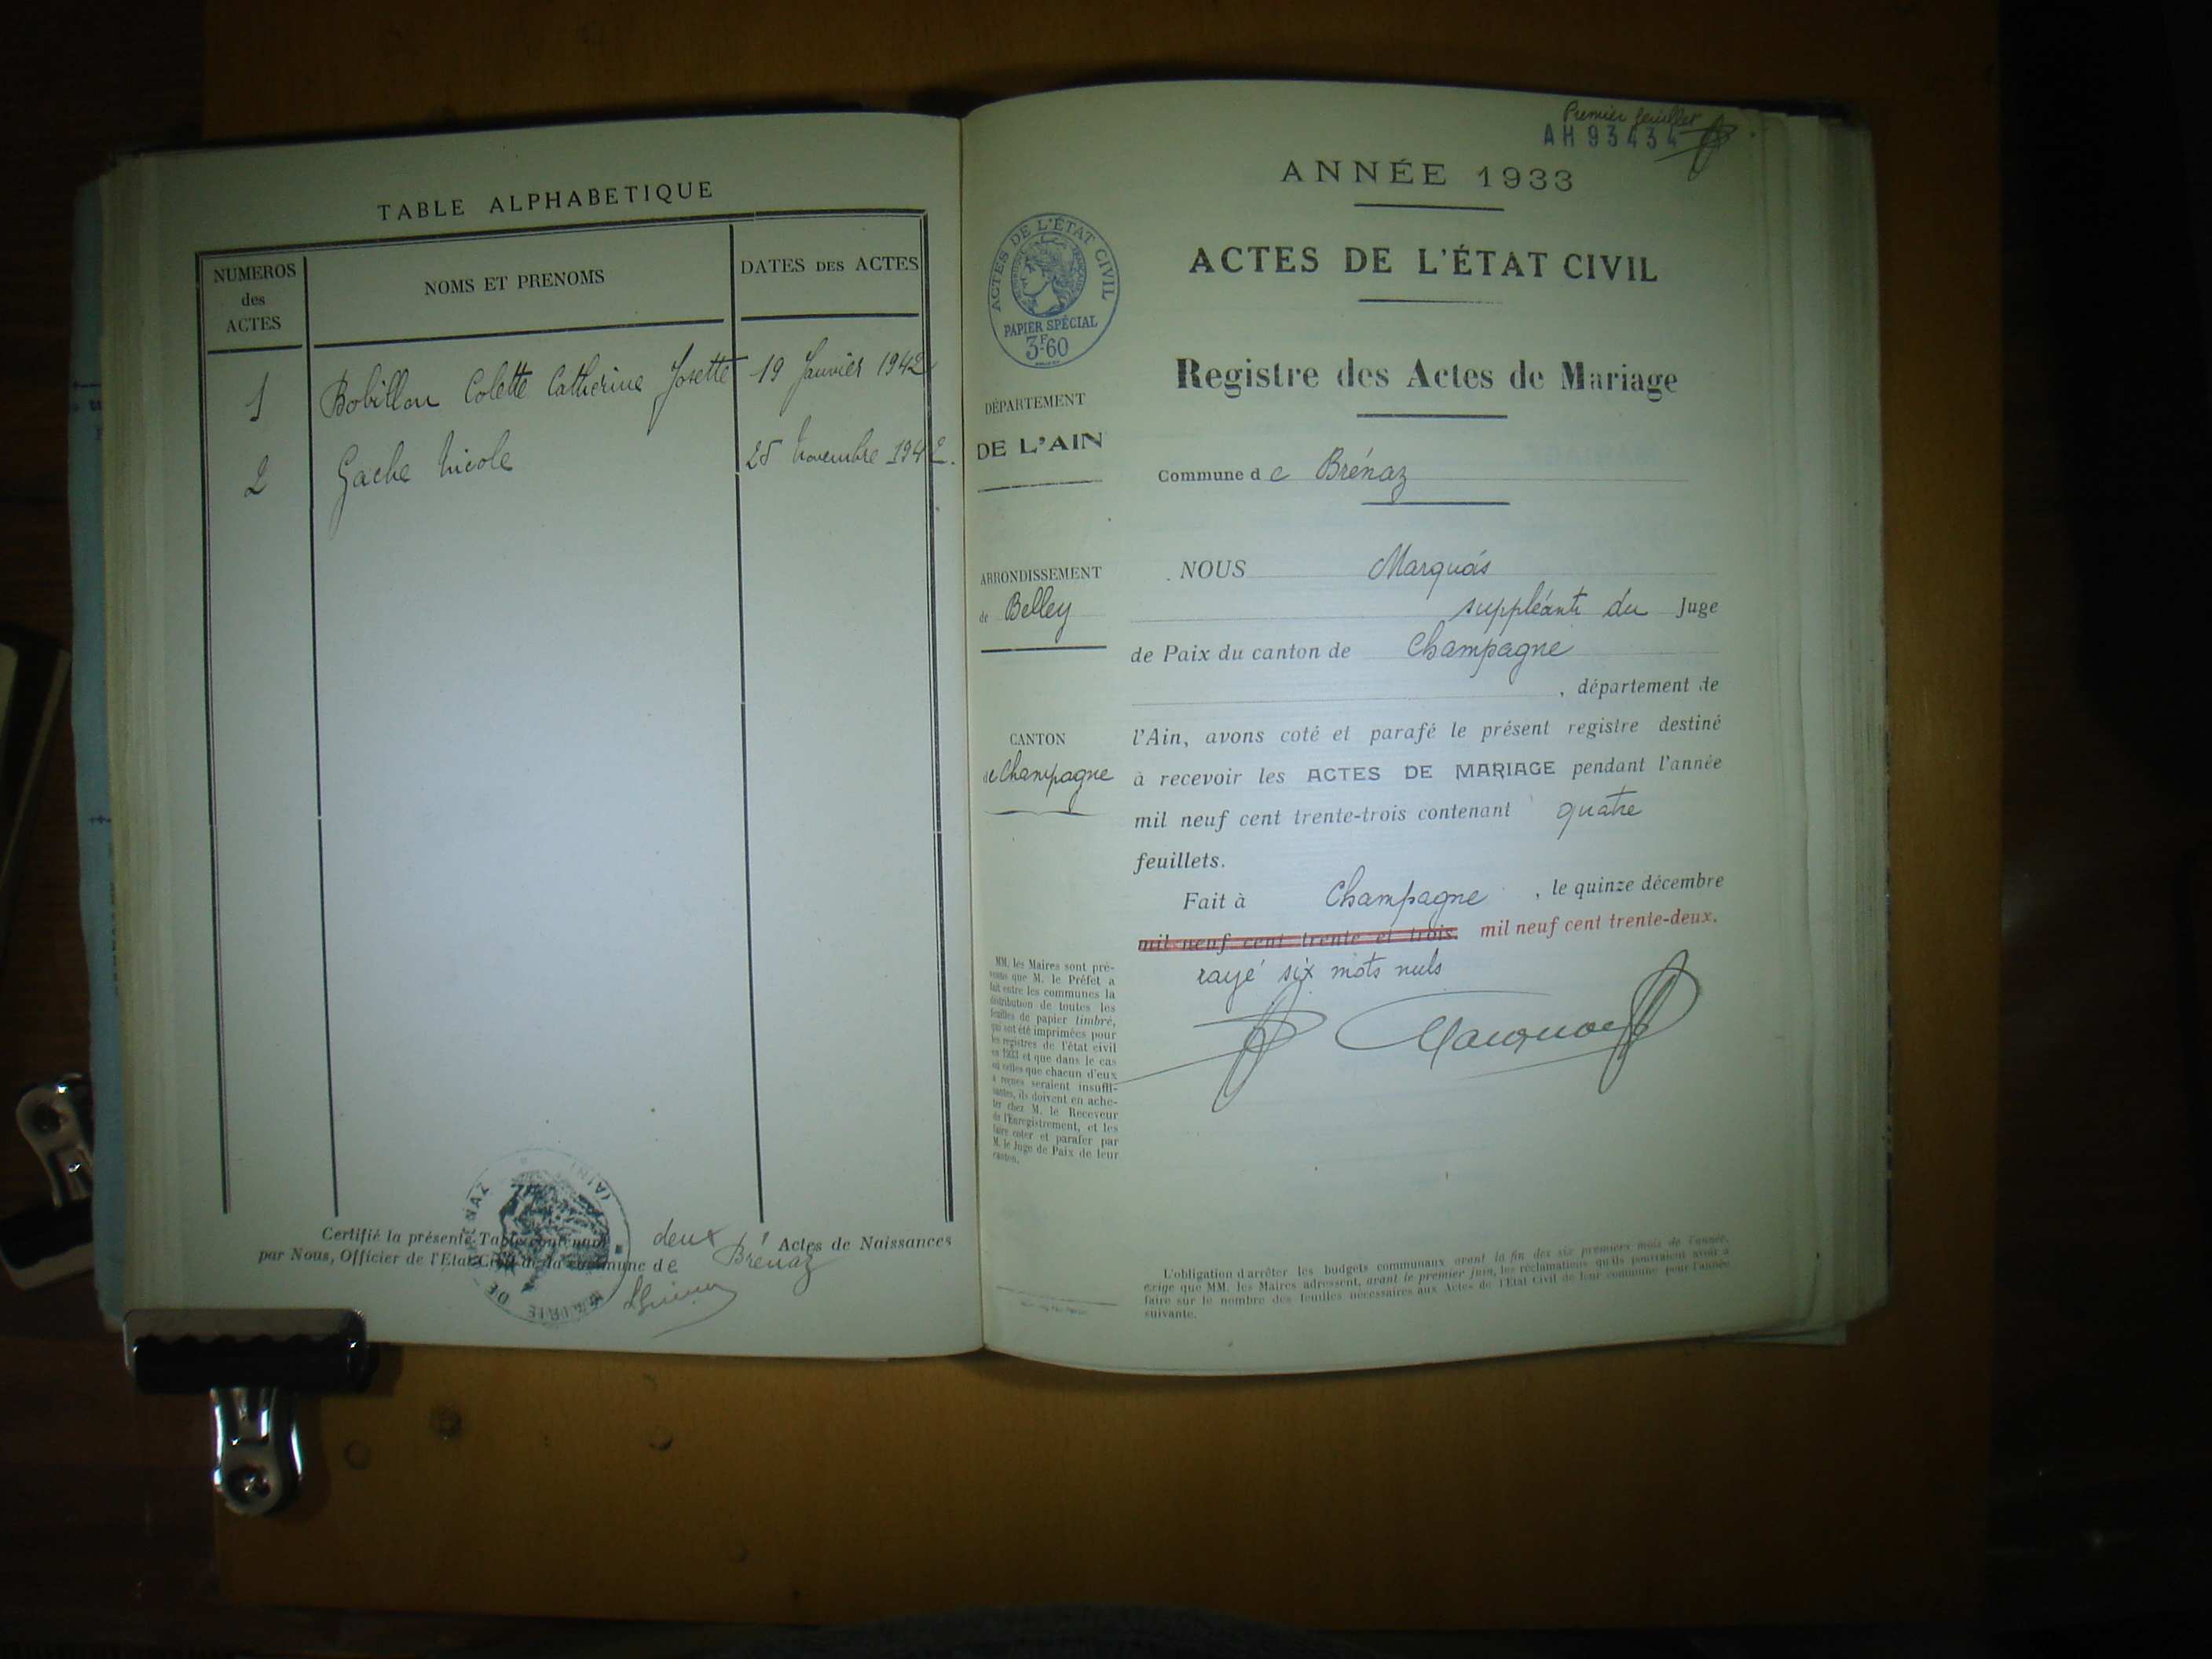 TABLE ALPHABETIQUE
NUMEROS
des
ACTES
NOMS ET PRENOMS
DATES DES ACTES
1 Bobillon Colette Catherine Josette 19 Janvier 1942
2 Gache Nicole 25 Novembre 1942.
Certifié la présente Table contenant deux Actes de Naissances
par Nous, Officier de l'Etat Civil de la commune de Brénaz
MAIRIE DE BRENAZ (AIN)
Premier feuillet
AH 93434
ANNÉE 1933
ACTES DE L'ÉTAT CIVIL
PAPIER SPÉCIAL
3F60
ACTES DE L'ÉTAT CIVIL
Registre des Actes de Mariage
DÉPARTEMENT
DE L'AIN
Commune de Brénaz
ARRONDISSEMENT
de Belley
CANTON
de Champagne
NOUS Marquis
suppléant du Juge
de Paix du canton de Champagne
, département de
l'Ain, avons coté et parafé le présent registre destiné
à recevoir les ACTES DE MARIAGE pendant l'année
mil neuf cent trente-trois contenant quatre
feuillets.
Fait à Champagne, le quinze décembre
mil neuf cent trente et trois. mil neuf cent trente-deux.
rayé six mots nuls
MM. les Maires sont pré-
venus que M. le Préfet a
fait entre les communes la
distribution de toutes les
feuilles de papier timbré,
qui ont été imprimées pour
les registres de l'état civil
en 1933 et que dans le cas
où celles que chacun d'eux
a reçues seraient insuffi-
santes, ils doivent en ache-
ter chez M. le Receveur
de l'Enregistrement, et les
faire coter et parafer par
M. le Juge de Paix de leur
canton.
L'obligation d'arrêter les budgets communaux avant la fin des six premiers mois de l'année,
exige que MM. les Maires adressent, avant le premier juin, les réclamations qu'ils pourraient avoir à
faire sur le nombre des feuilles nécessaires aux Actes de l'Etat Civil de leur commune pour l'année
suivante.